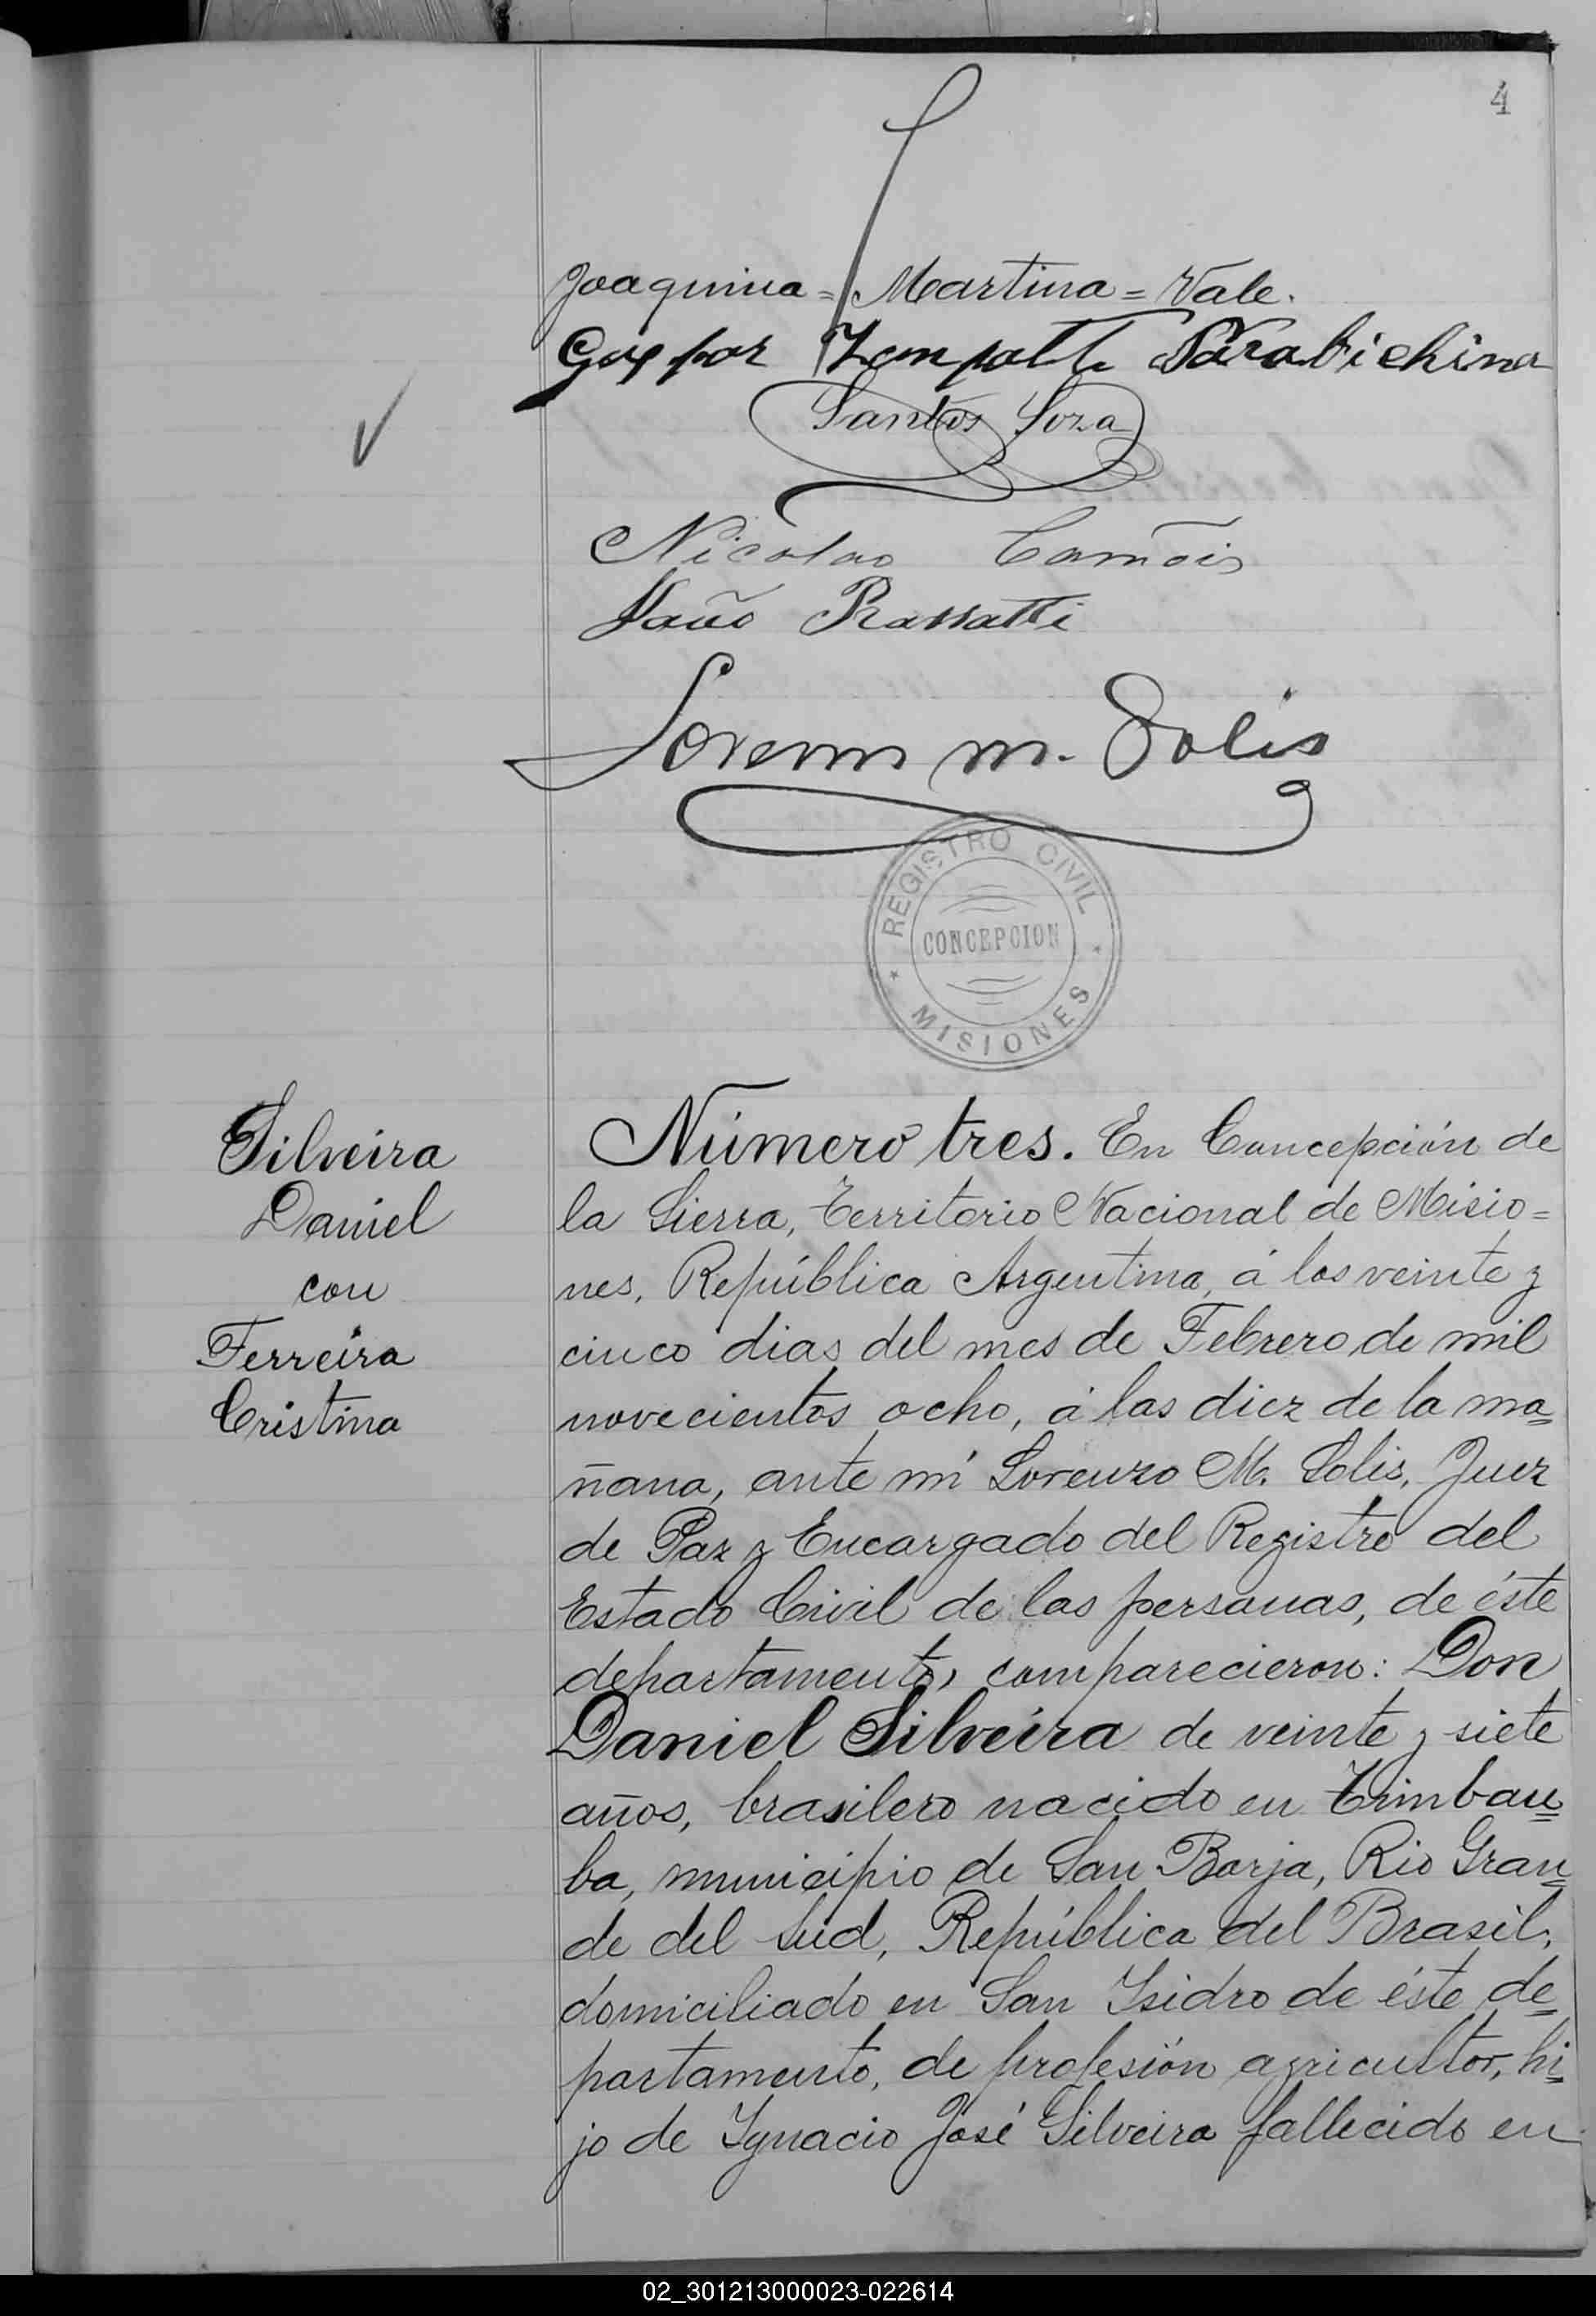 4
Joaquina = Martina = Vale.
Gaspar
Santos Soza
Nicolao
Rassatti
Lorenzo M. Solis
REGISTRO CIVIL
CONCEPCION
MISIONES
Silveira
Daniel
con
Ferreira
Cristina
Número tres. En Concepción de
la Sierra, Territorio Nacional de Misio=
nes, República Argentina, á los veinte y
cinco dias del mes de Febrero de mil
novecientos ocho, á las diez de la ma=
ñana, ante mí Lorenzo M. Solis, Juez
de Paz y Encargado del Registro del
Estado Civil de las personas, de éste
departamento, comparecieron: Don
Daniel Silveira de veinte y siete
años, brasilero nacido en Timbau=
ba, municipio de San Borja, Rio Gran=
de del Sud, República del Brasil,
domiciliado en San Isidro de éste de=
partamento, de profesión agricultor, hi=
jo de Ygnacio José Silveira fallecido en
02_301213000023-022614